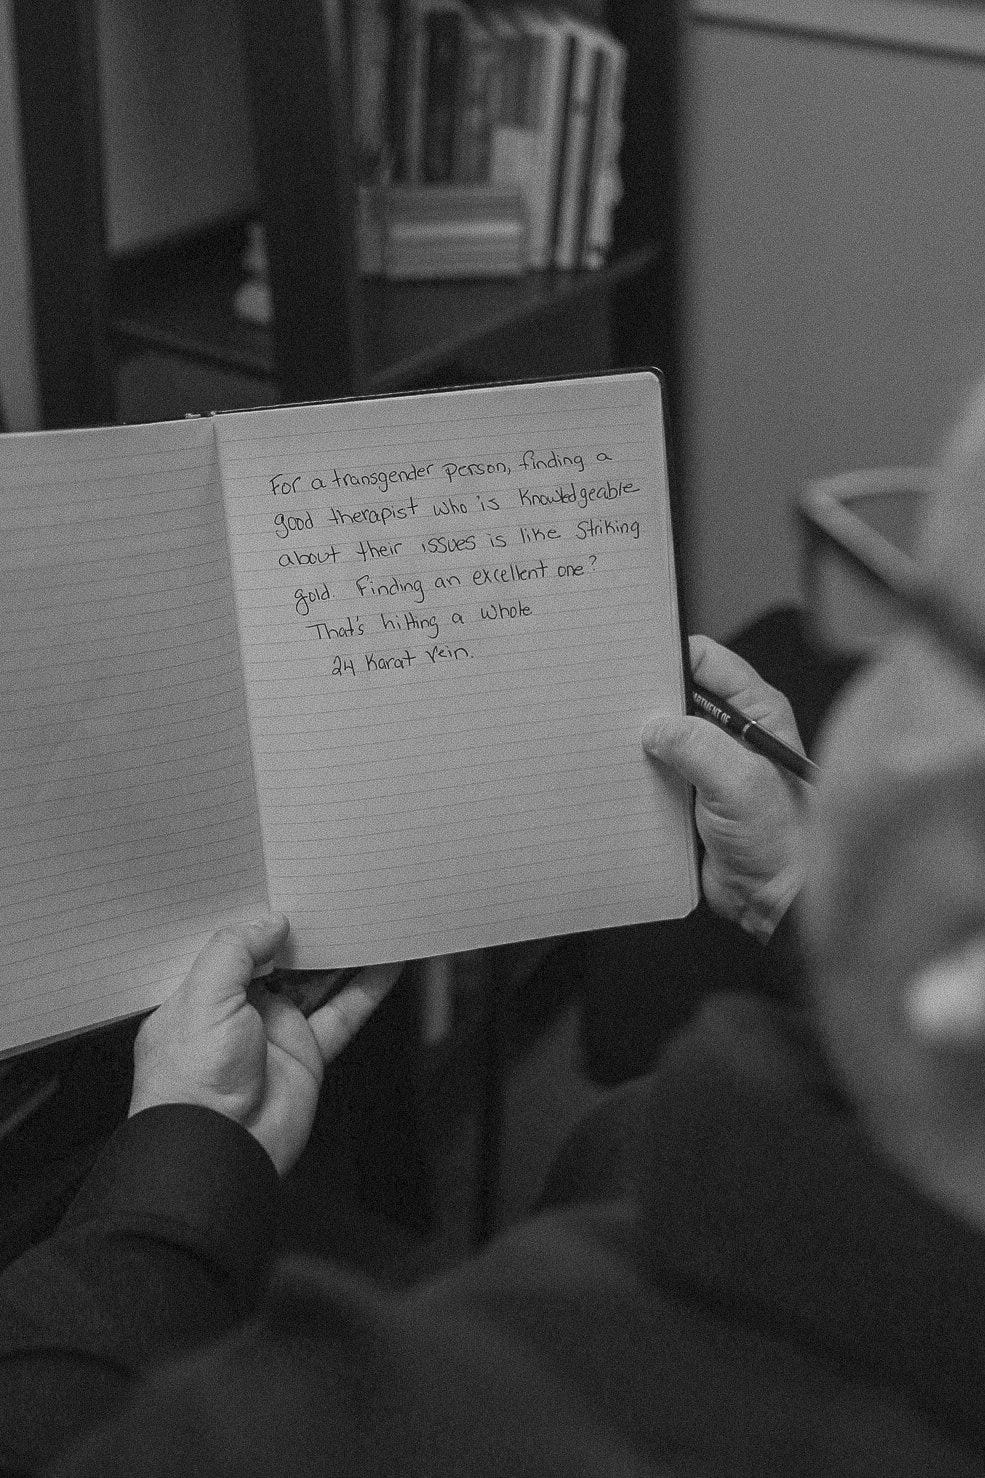 For a transgender person, finding a
good therapist who is knowledgeable
about their issues is like striking
gold. Finding an excellent one?
That's hitting a whole
24 Karat vein.
ARTMENT OF